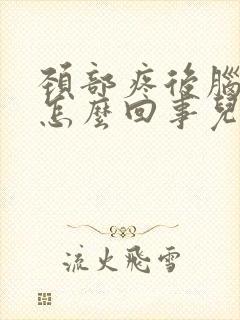 頚部疼後腦
怎麼回事兒
流火飛雪